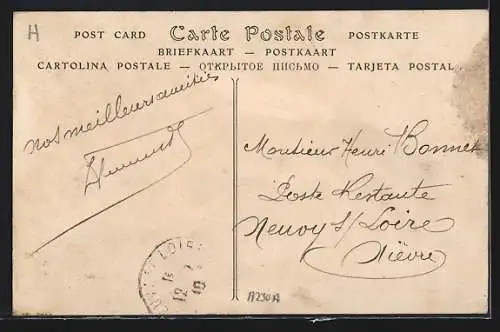 H
POST CARD Carte Postale POSTKARTE
BRIEFKAART — POSTKAART
CARTOLINA POSTALE — ОТКРЫТОЕ ПИСЬМО — TARJETA POSTAL
nos meilleurs amitiés
Monsieur Henri Bonnet
Poste Restante
Neuvy s/ Loire
Nièvre
LOIRE
12
19
A230A